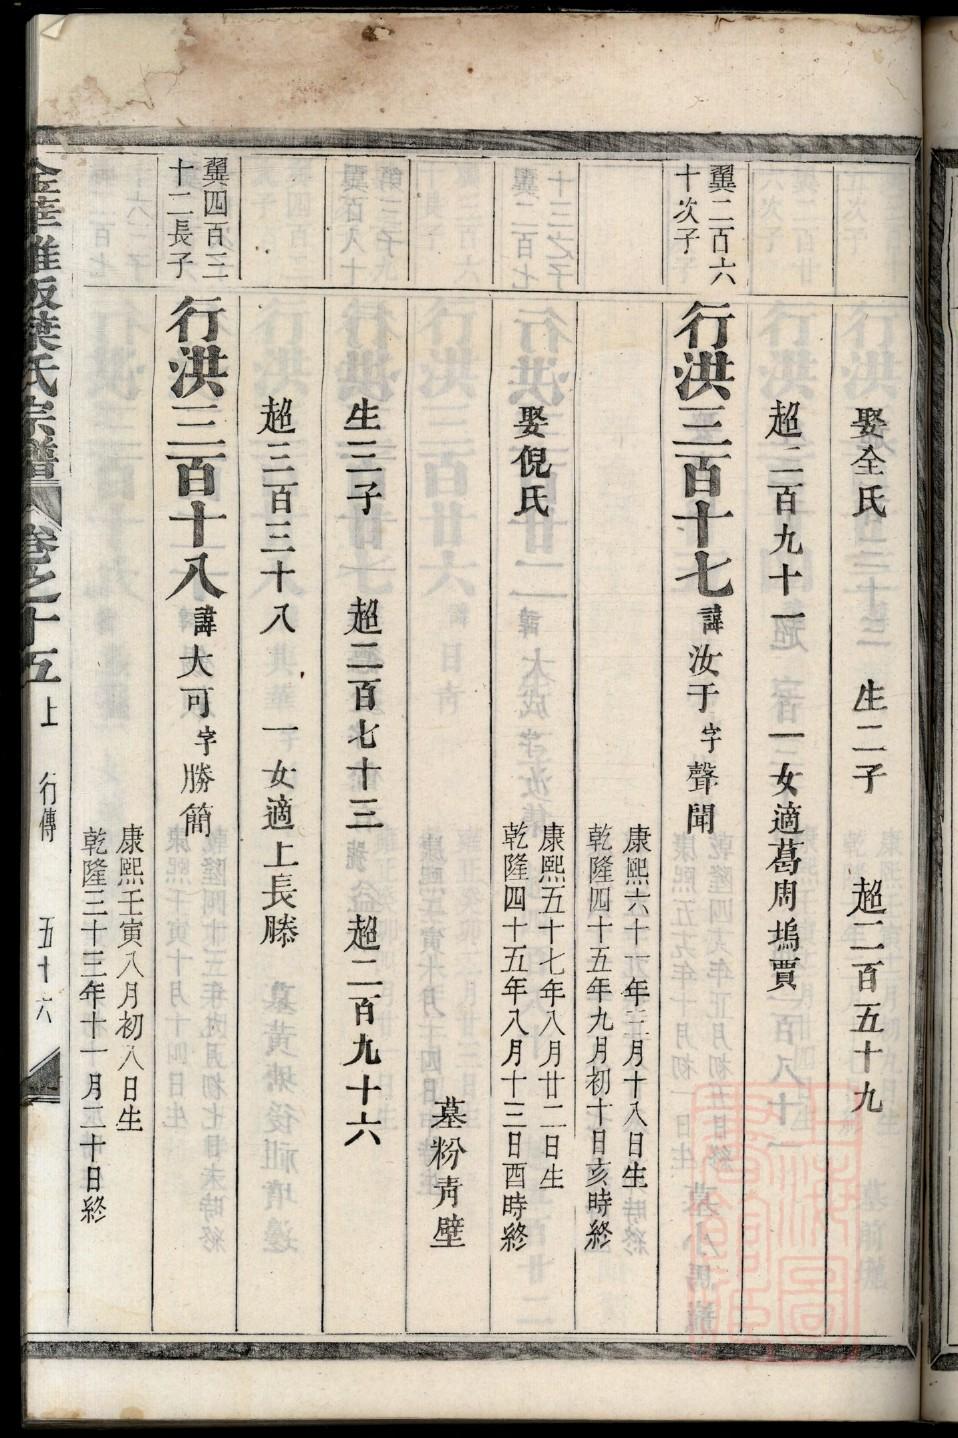 娶全氏　生二子　超二百五十九
超二百九十一　一女適葛周塢賈
翼二百六
十次子
行洪三百十七諱汝于字聲聞
康熙六十一年三月十八日生
乾隆四十五年九月初十日亥時終
娶倪氏
康熙五十七年八月廿二日生
乾隆四十五年八月十三日酉時終
墓粉青壁
生三子　超二百七十三　超二百九十六
超三百三十八　一女適上長滕
翼四百三
十二長子
行洪三百十八諱大可字勝簡
康熙壬寅八月初八日生
乾隆三十三年十一月二十日終
葉氏宗譜　卷之十五上　行傳　五十六